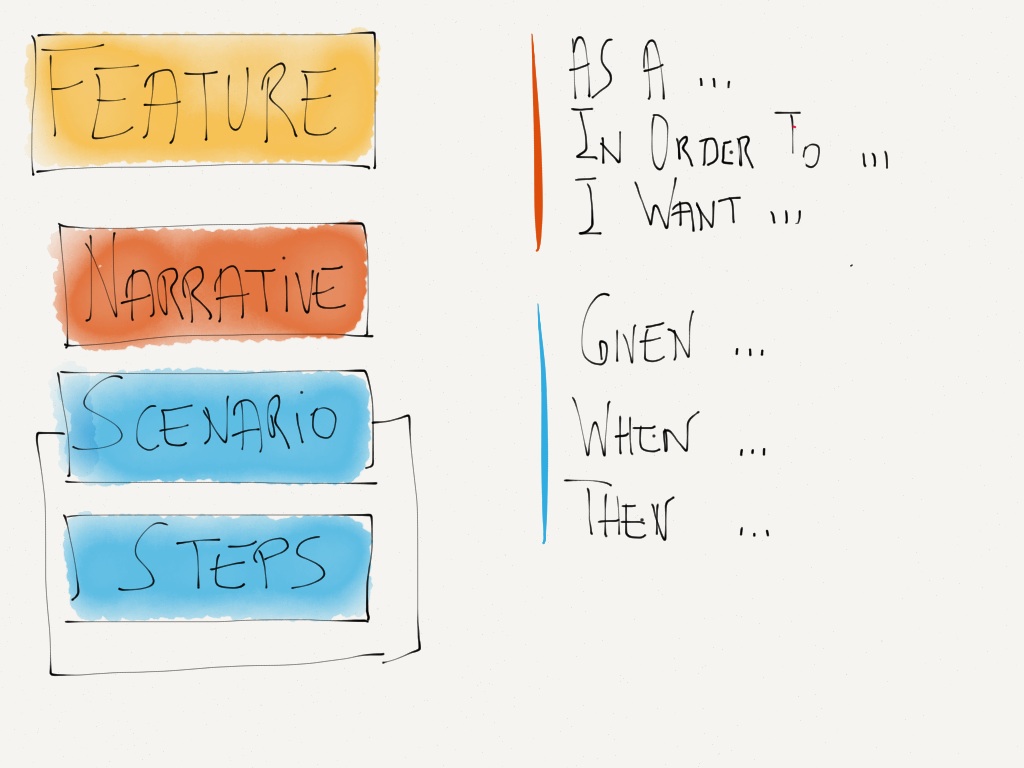 FEATURE
NARRATIVE
SCENARIO
STEPS
AS A ...
IN ORDER TO ...
I WANT ...
GIVEN ...
WHEN ...
THEN ...